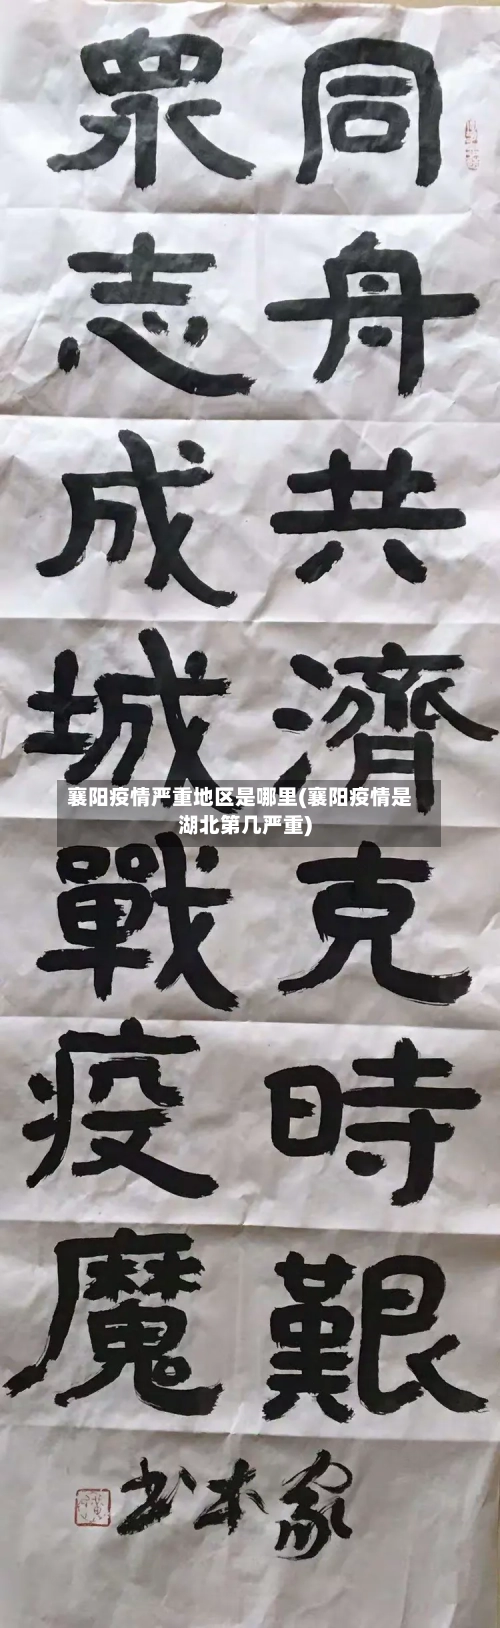 同舟共濟克時艱
眾志成城戰疫魔
家本书
襄阳疫情严重地区是哪里(襄阳疫情是
湖北第几严重)